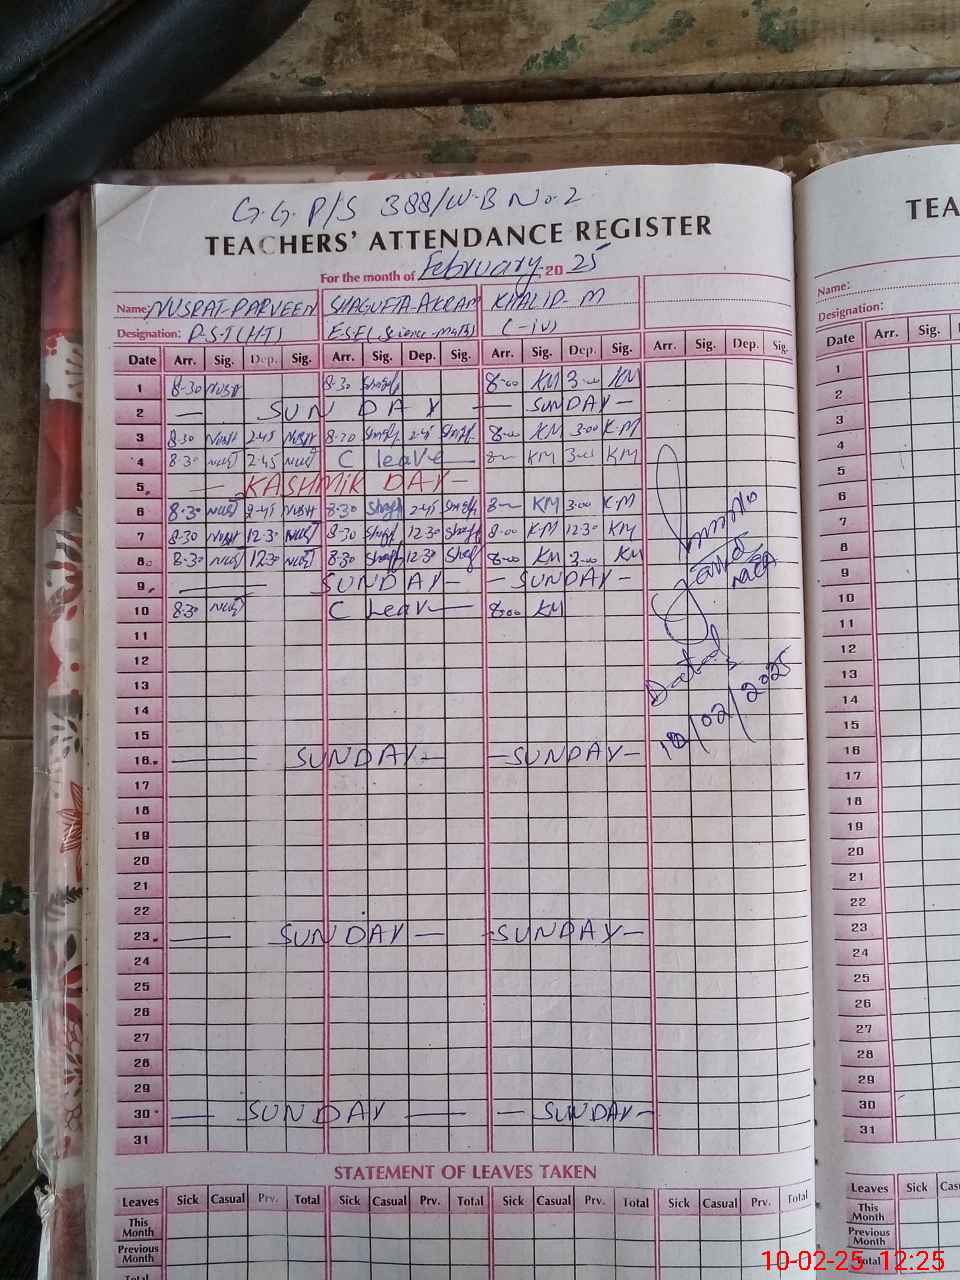 G.G. P/S 388/W.B No.2
TEACHERS' ATTENDANCE REGISTER
For the month of February 20 25
Name: NUSRAT-PARVEEN SHAGUFTA-AKRAM KHALID-M
Designation: P.S.T(HT) ESE(Science-Math) C-IV)
Date Arr. Sig. Dep. Sig. Arr. Sig. Dep. Sig. Arr. Sig. Dep. Sig. Arr. Sig. Dep. Sig.
1 8-30 8-30 8-00 KM 3-00 KM
2 — SUNDAY — SUNDAY-
3 8-30 2-45 8-30 2-45 8-00 KM 3-00 K-M
4 8-30 2-45 C leave — KM 3-00 KM
5 — KASHMIR DAY-
6 8-30 2-45 8-30 2-45 8- KM 3-00 K-M
7 8-30 12-30 8-30 12-30 8-00 KM 12-30 KM
8 8-30 12-30 8-30 12-30 8-00 KM 3-00 KM
9 — SUNDAY- — SUNDAY-
10 8-30 C Leav — 8-00 KM
11
12
13
14
15
16 — SUNDAY- -SUNDAY-
17
18
19
20
21
22
23 — SUNDAY — -SUNDAY-
24
25
26
27
28
29
30 — SUNDAY — — SUNDAY-
31
Dated
10/02/2025
STATEMENT OF LEAVES TAKEN
Leaves Sick Casual Prv. Total Sick Casual Prv. Total Sick Casual Prv. Total Sick Casual Prv. Total
This Month
Previous Month
TEA
Name:
Designation:
Date Arr. Sig.
1
2
3
4
5
6
7
8
9
10
11
12
13
14
15
16
17
18
19
20
21
22
23
24
25
26
27
28
29
30
31
Leaves Sick Cas
This Month
Previous Month
Total
10-02-25 12:25